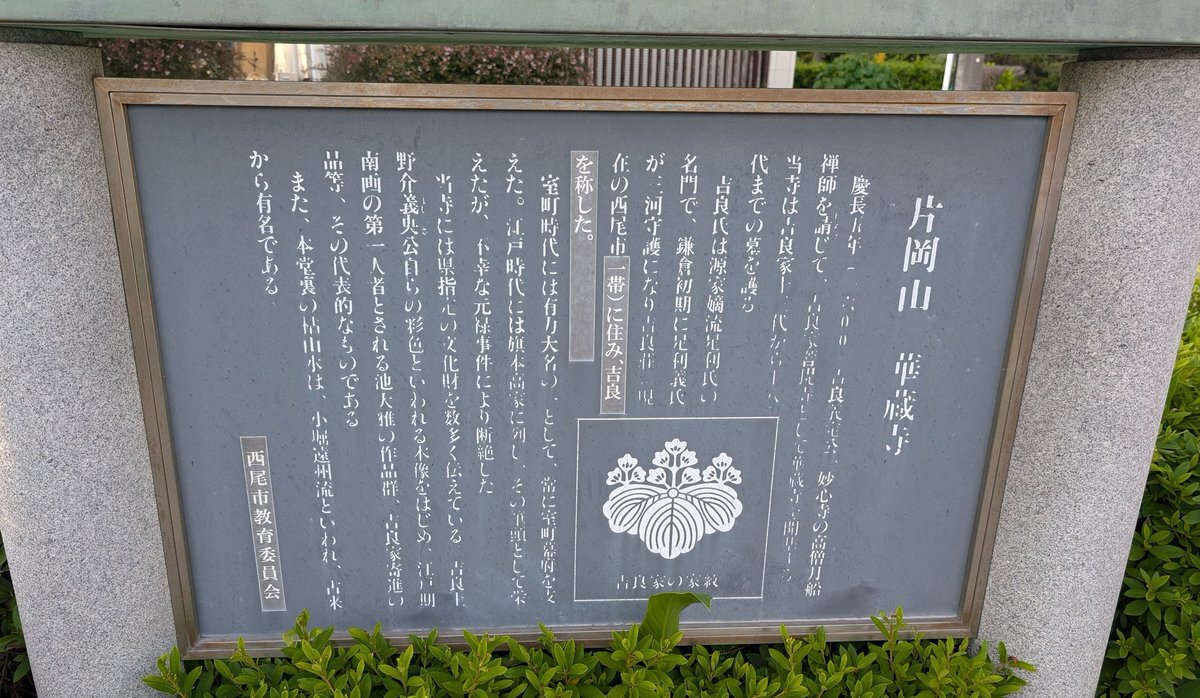 片岡山 華蔵寺
慶長五年 六00 吉良義定、妙心寺の高僧月船
禅師を請じて、吉良家菩提寺として華蔵寺を開
当寺は吉良家十二代から十八
代までの墓を護る
吉良氏は源家嫡流足利氏の
名門で、鎌倉初期に足利義氏
が三河守護になり吉良荘 現
在の西尾市一帯）に住み、吉良
を称した。
室町時代には有力大名の一として、常に室町幕府を支
えた。江戸時代には旗本高家に列し、その筆頭として栄
えたが、不幸な元禄事件により断絶した
当寺には県指定の文化財を数多く伝えている 吉良上
野介義央公自らの彩色といわれる木像をはじめ、江戸期
南画の第一人者とされる池大雅の作品群、吉良家寄進の
品等、その代表的なものである
また、本堂裏の枯山水は、小堀遠州流といわれ、古来
から有名である
西尾市教育委員会
吉良家の家紋